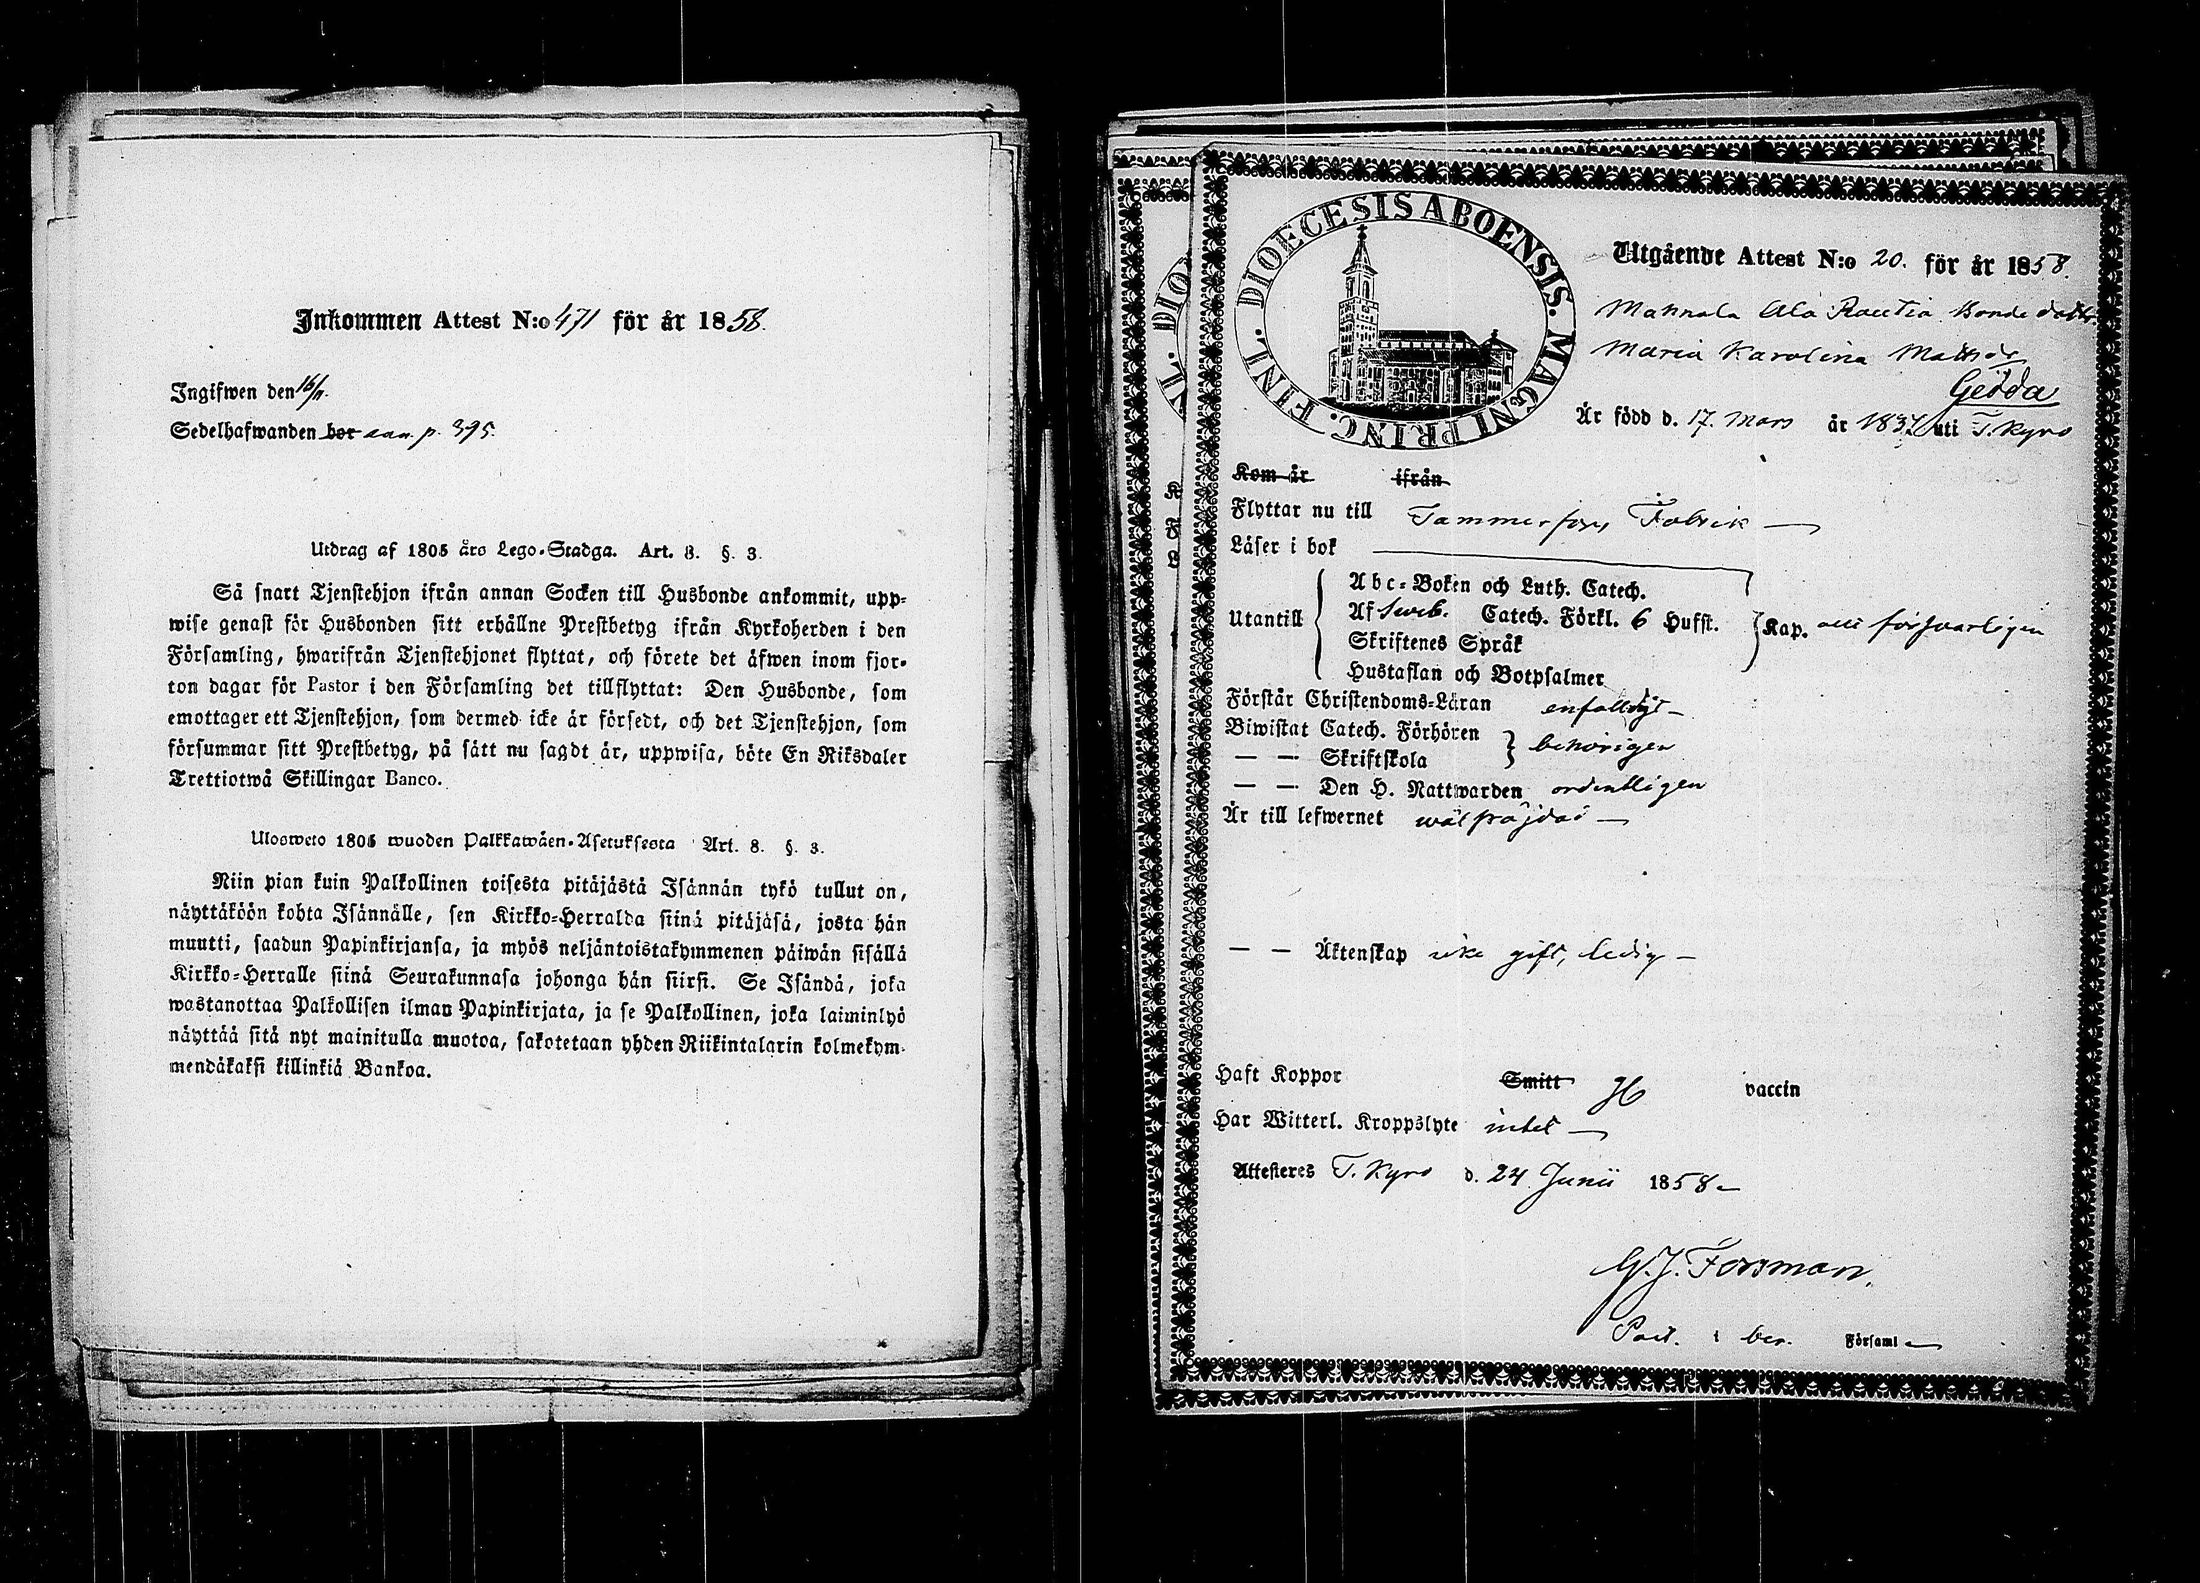 Inkommen Attest N:o 471 för år 1858.
Ingifwen den 16/11.
Sedelhafwanden bor ann. p. 395.
Utdrag af 1805 års Lego-Stadga. Art. 8. §. 3.
Så snart Tjenstehjon ifrån annan Socken till Husbonde ankommit, upp-
wise genast för Husbonden sitt erhållne Prestbetyg ifrån Kyrkoherden i den
Församling, hwarifrån Tjenstehjonet flyttat, och förete det äfwen inom fjor-
ton dagar för Pastor i den Församling det tillflyttat: Den Husbonde, som
emottager ett Tjenstehjon, som dermed icke är försedt, och det Tjenstehjon, som
försummar sitt Prestbetyg, på sätt nu sagdt är, uppwisa, böte En Riksdaler
Trettiotwå Skillingar Banco.
Ulosweto 1805 wuoden Palkkawäen-Asetuksesta Art. 8. §. 3.
Niin pian kuin Palkollinen toisesta pitäjästä Isännän tykö tullut on,
näyttäköön kohta Isännälle, sen Kirkko-Herralda siinä pitäjäsä, josta hän
muutti, saadun Papinkirjansa, ja myös neljäntoistakymmenen päiwän sisällä
Kirkko-Herralle siinä Seurakunnasa johonga hän siirsi. Se Isändä, joka
wastanottaa Palkollisen ilman Papinkirjata, ja se Palkollinen, joka laiminlyö
näyttää sitä nyt mainitulla muotoa, sakotetaan yhden Riikintalarin kolmekym-
mendäkaksi killinkiä Bankoa.
DIOECESIS ABOENSIS. MAGNI PRINC. FINL.
Utgående Attest N:o 20. för år 1858.
Mannala Ala Rautia Bondedottr.
Maria Karolina Mattsdr
Gedda
Är född d. 17. Mars år 1837 uti T. Kyro
Kom år ifrån
Flyttar nu till Tammerfors Fabrik —
Läser i bok
Abc-Boken och Luth. Catech.
Utantill Af Sweb. Catech. Förkl. 6 Hufst. Kap. försvarligen
Skriftenes Språk
Hustaflan och Botpsalmer
Förstår Christendoms-Läran enfaldigt —
Biwistat Catech. Förhören behörigen
— — Skriftskola
— — Den H. Nattwarden ordentligen
Är till lefwernet wälfräjdad —
— — Äktenskap icke gift, ledig —
Haft Koppor Smitt vaccin
Har Witterl. Kroppslyte intet —
Attesteres T. Kyro d. 24 Junii 1858 —
G. J. Forsman.
Past. i ber. Församl —